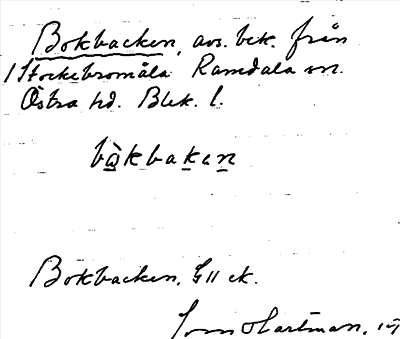 Bokbacken, avs. bek. från
1 Stockebromåla Ramdala sn.
Östra hd. Blek. l.
bòkbakan
Bokbacken. G11 ek.
Hartman.